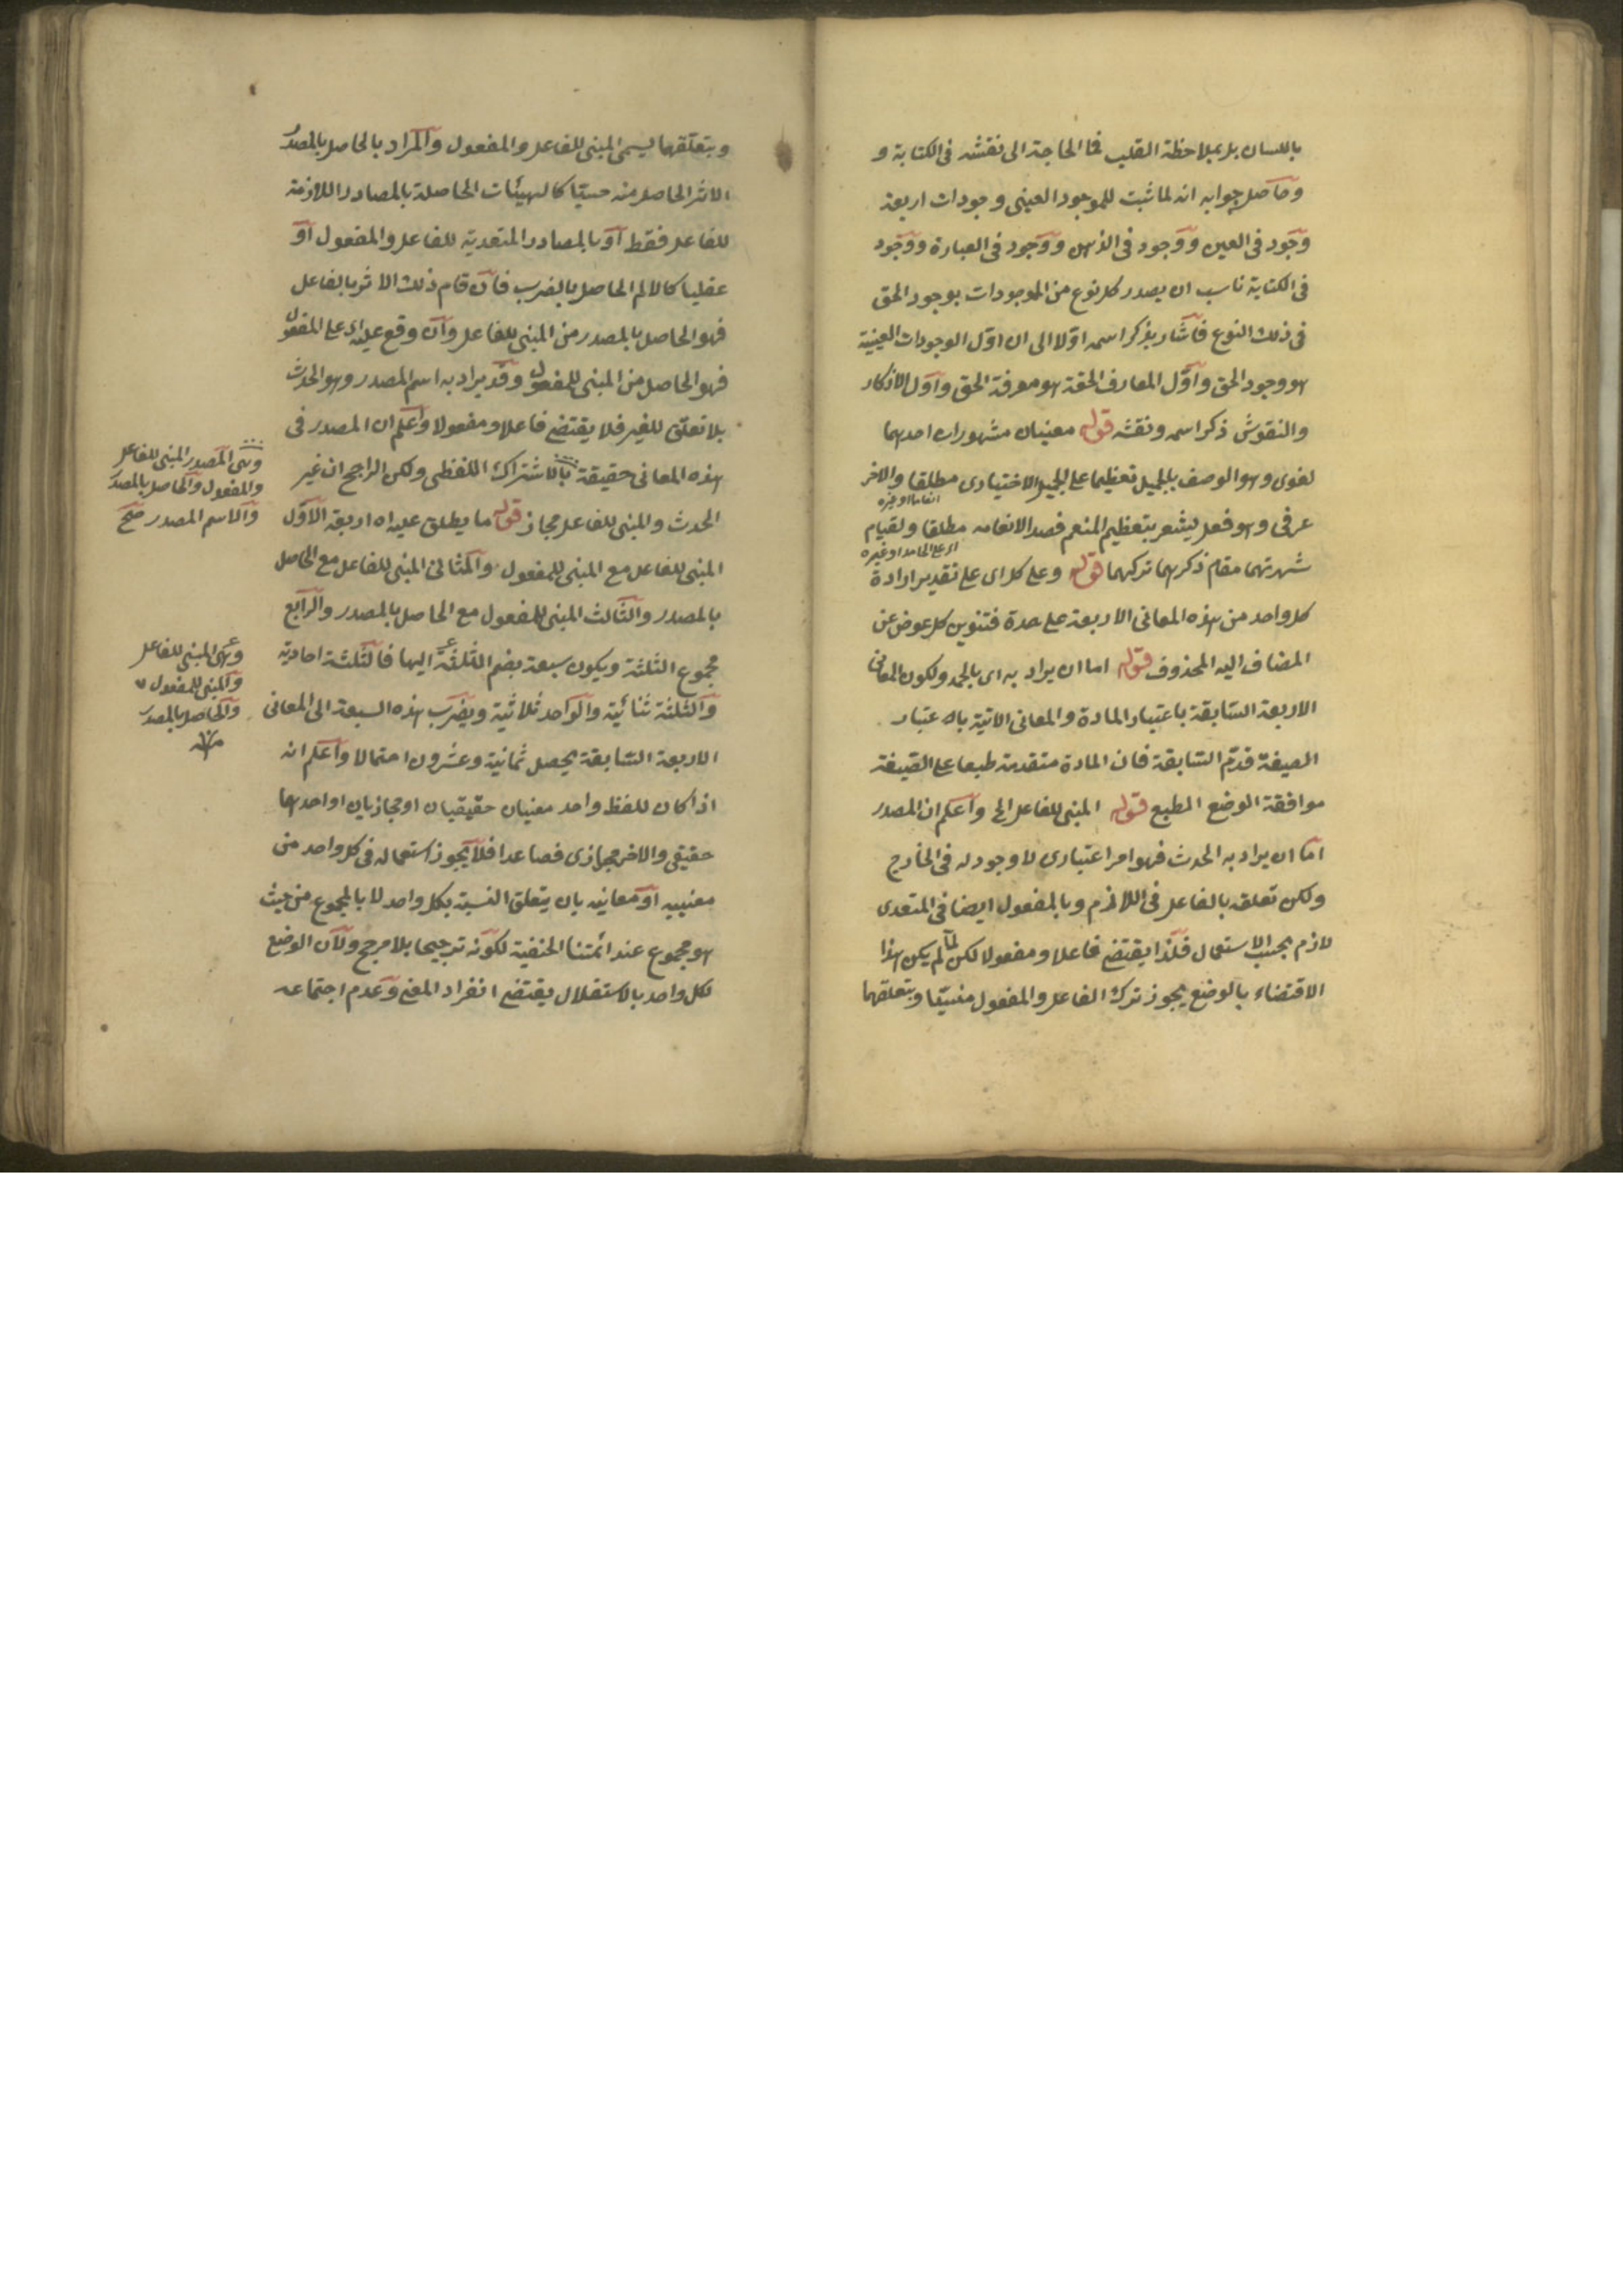 باللسان بل بملاحظة القلب فما الحاجة الى نقشه فى الكتابة و
وحاصل جوابه انه لما ثبت للموجود العينى وجودات اربعة
وجود فى العين ووجود فى الذهن ووجود فى العبارة ووجود
فى الكتابة ناسب ان يصدر كل نوع من الموجودات بوجود الحق
فى ذلك النوع فاشار بذكر اسمه اولا الى ان اول الوجودات العينية
هو وجود الحق واول المعارف الحقة هو معرفة الحق واول الاذكار
والنقوش ذكر اسمه ونقشه قوله معنيان مشهوران احدهما
لغوى وهو الوصف بالجميل تعظيما على الجميل الاختيارى مطلقا والاخر
انعاما او غيره
عرفى وهو فعل يشعر بتعظيم المنعم قصد الانعامه مطلقا ولقيام
اى على الحامد او غيره
شهرتهما مقام ذكرهما تركهما قوله وعلى كل اى على تقدير ارادة
كل واحد من هذه المعانى الاربعة على حدة فتنوين كل عوض عن
المضاف اليه المحذوف قوله اما ان يراد به اى بالحمد ولكون المعانى
الاربعة السابقة باعتبار المادة والمعانى الاتية باعتبار
الصيغة قدم السابقة فان المادة متقدمة طبعا على الصيغة
موافقة الوضع الطبع قوله المبنى للفاعل الخ واعلم ان المصدر
اما ان يراد به الحدث فهو امر اعتبارى لا وجود له فى الخارج
ولكن تعلقه بالفاعل فى اللازم وبالمفعول ايضا فى المتعدى
لازم بحسب الاستعمال فلذا يقتضى فاعلا ومفعولا لكن لما لم يكن هذا
الاقتضاء بالوضع يجوز ترك الفاعل والمفعول منسيا وبتعلقهما
وبتعلقهما يسمى المبنى للفاعل والمفعول والمراد بالحاصل بالمصدر
الاثر الحاصل منه حسيا كالهيئات الحاصلة بالمصادر اللازمة
للفاعل فقط او بالمصادر المتعدية للفاعل والمفعول او
عقليا كالالم الحاصل بالضرب فان قام ذلك الاثر بالفاعل
فهو الحاصل بالمصدر من المبنى للفاعل وان وقع عليه اى على المفعول
فهو الحاصل من المبنى للمفعول وقد يراد به اسم المصدر وهو الحدث
بلا تعلق للغير فلا يقتضى فاعلا ومفعولا واعلم ان المصدر فى
هذه المعانى حقيقة بالاشتراك اللفظى ولكن الراجح انه غير
الحدث والمبنى للفاعل مجاز قوله ما يطلق عليه اه اربعة الاول
المبنى للفاعل مع المبنى للمفعول والثانى المبنى للفاعل مع الحاصل
بالمصدر والثالث المبنى للمفعول مع الحاصل بالمصدر والرابع
مجموع الثلثة ويكون سبعة بضم الثلثة اليها فالثلثة احادية
والثلثة ثنائية والواحد ثلاثية ويضرب هذه السبعة الى المعانى
الاربعة السابقة يحصل ثمانية وعشرون احتمالا واعلم انه
اذا كان للفظ واحد معنيان حقيقيان او مجازيان او احدهما
حقيقى والاخر مجازى فصاعدا فلا يجوز استعماله فى كل واحد من
معنييه او معانيه بان يتعلق النسبة بكل واحد لا بالمجموع من حيث
هو مجموع عند ائمتنا الحنفية لكونه ترجيحا بلا مرجح ولان الوضع
لكل واحد بالاستقلال يقتضى انفراد المعنى وعدم اجتماعه
وهى المصدر المبنى للفاعل
والمفعول والحاصل بالمصدر
والاسم المصدر صح
وهى المبنى للفاعل
والمبنى للمفعول
والحاصل بالمصدر